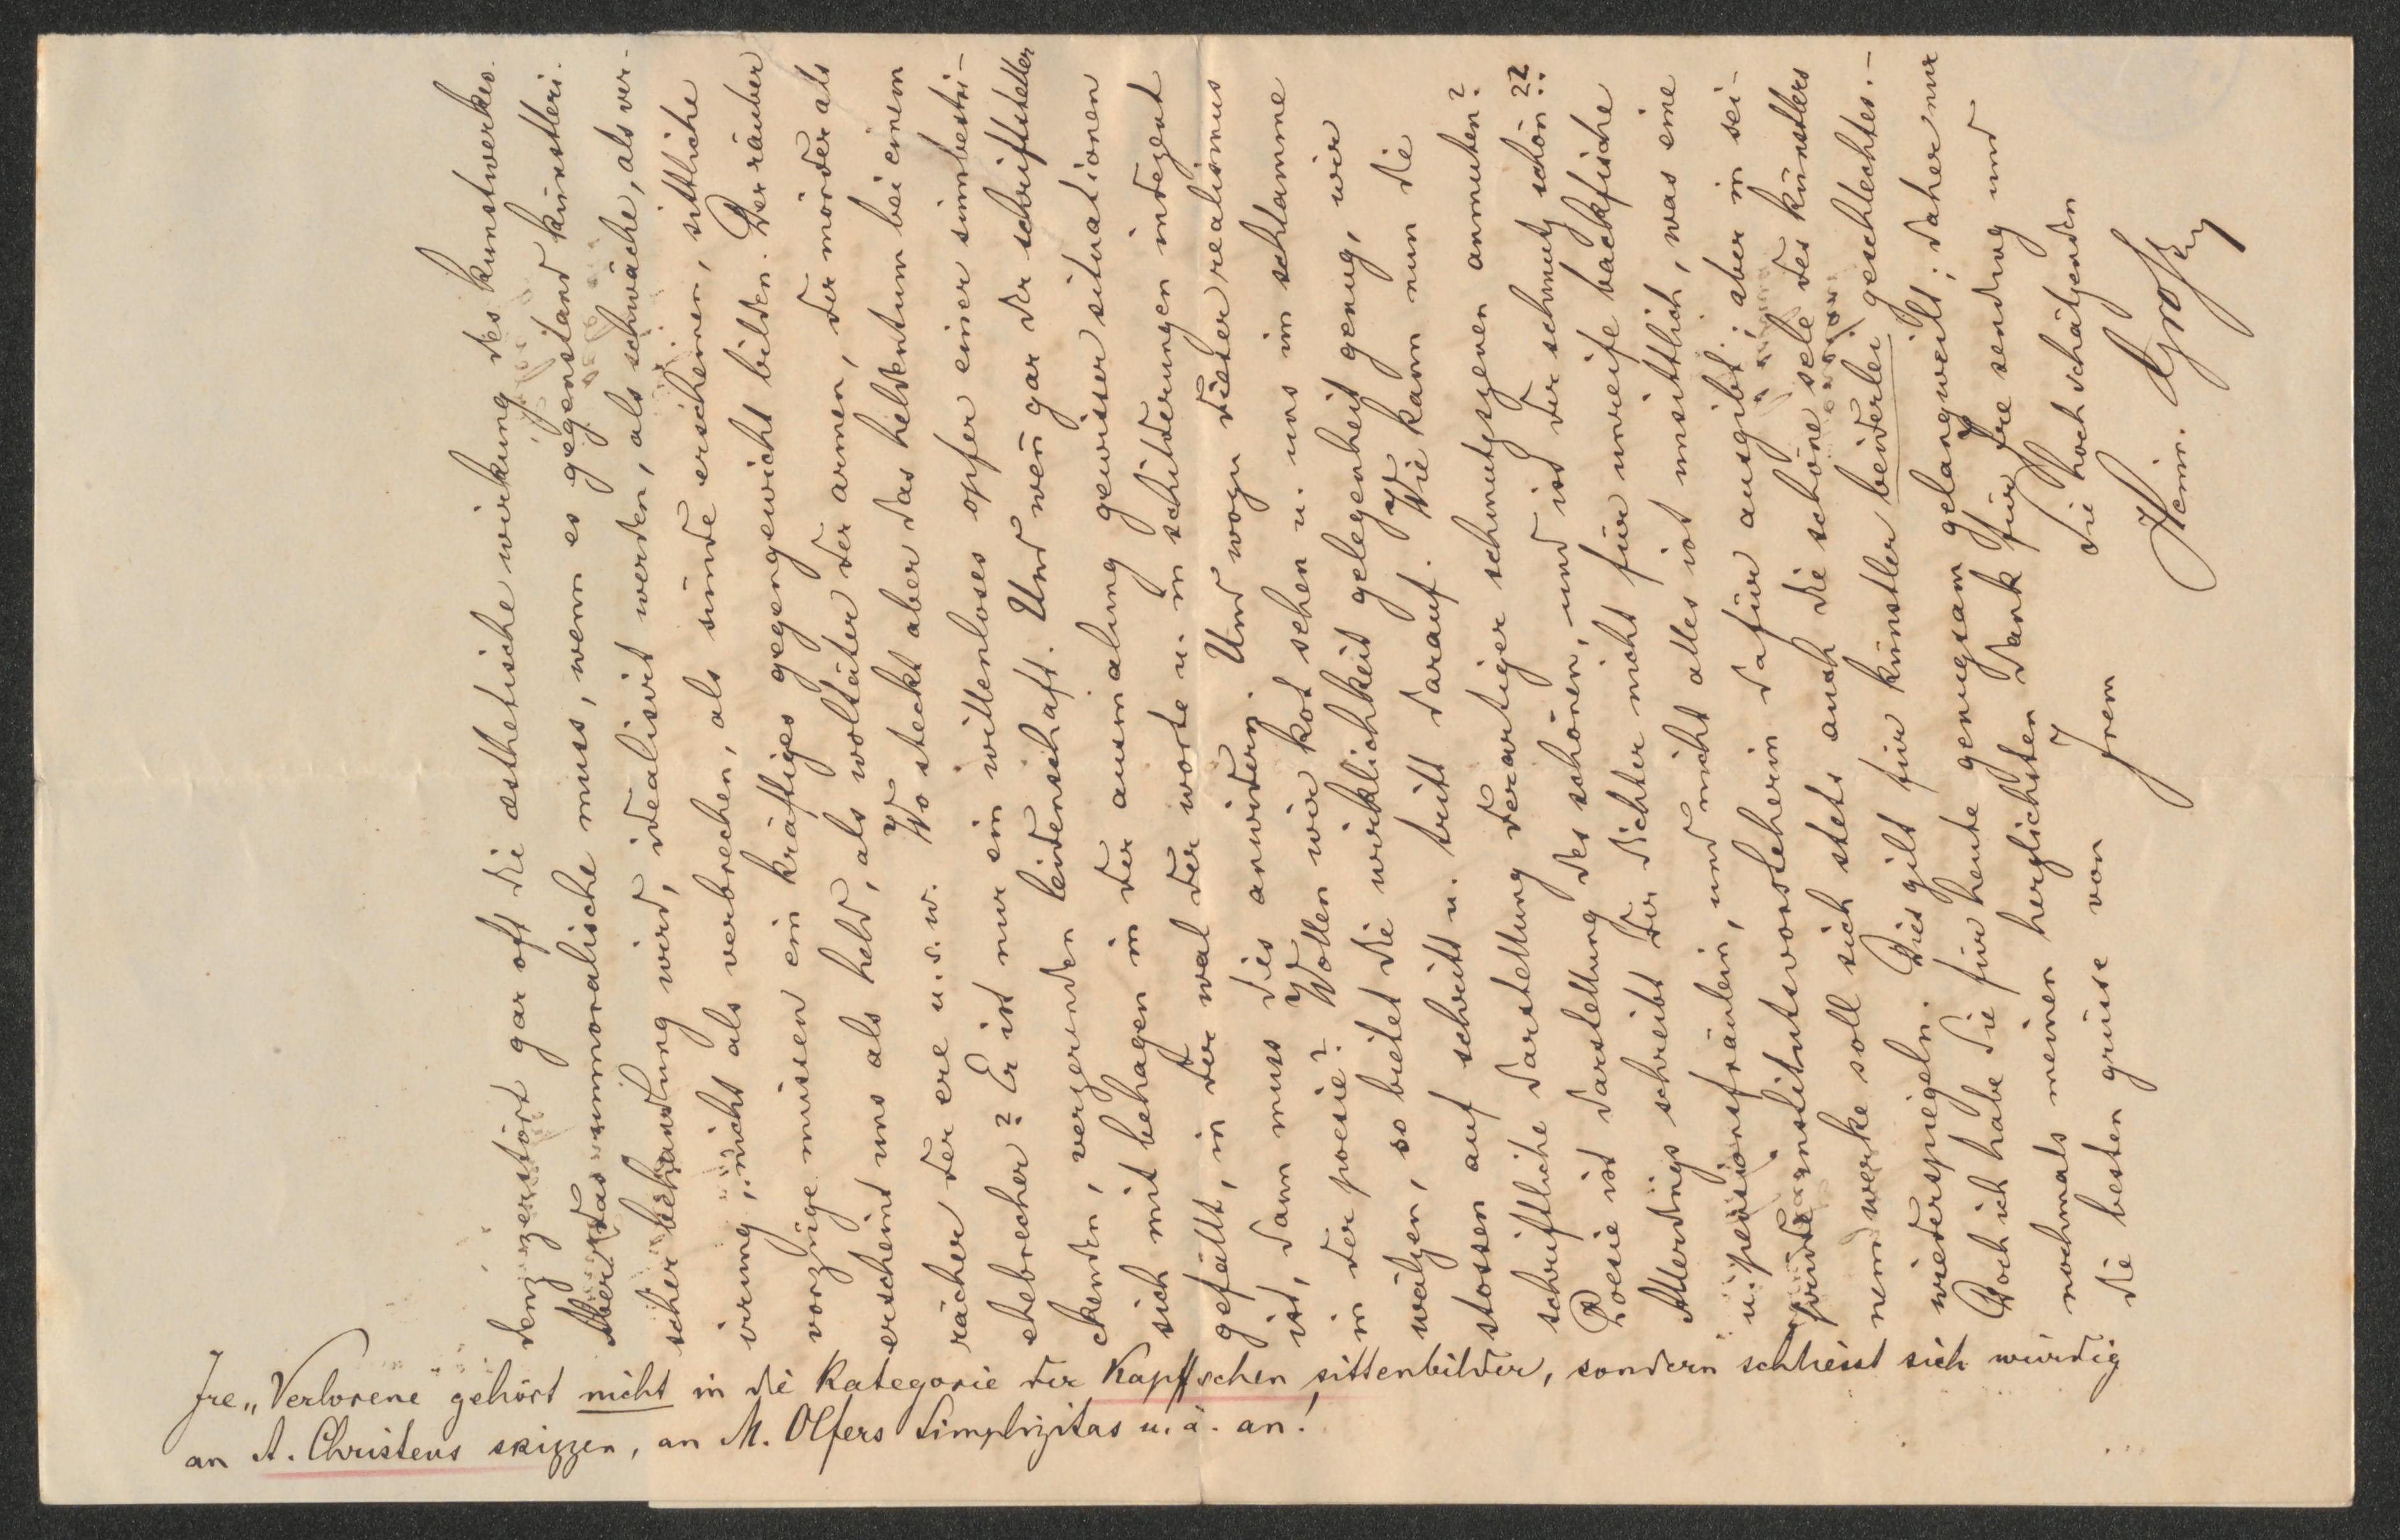 denz zerstört gar oft die æsthetische wirkung des kunstwerkes.
Aber das unmoralische muss, wenn es gegenstand künstleri-
scher behandlung wird, idealisirt werden, als schwäche, als ver-
irrung, nicht als verbrechen, als sünde erscheinen, sittliche
vorzüge müssen ein kräftiges gegengewicht bilden. Der räuber
erscheint uns als held, als woltäter der armen, der mörder als
rächer der ere u.s.w. Wo steckt aber das heldentum bei einem
ehebrecher? Er ist nur ein willenloses opfer einer sinnbestri-
ckenden, verzerenden leidenschaft. Und wen̄ gar der schriftsteller
sich mit behagen in der ausmalung gewisser situationen
gefällt, in der wal der worte u. in schilderungen indezent
ist, dann muss dies anwidern. Und wozu dieser realismus
in der poesie? Wollen wir kot sehen u. uns im schlamme
wälzen, so bietet die wirklichkeit gelegenheit genug, wir
stossen auf schritt u. tritt darauf. Wie kann nun die
schriftliche darstellung derartiger schmutzszenen anmuten?
Poesie ist darstellung des schönen, und ist der schmutz schön??
Allerdings schreibt der dichter nicht für unreife backfische
u. pensionsfräulein, und nicht alles ist unsittlich, was eine
prüde institutsvorsteherin dafür ausgibt; aber in sei-
nem werke soll sich stets auch die schöne sele des künstlers
wiederspiegeln. Dies gilt für künstler beiderlei geschlechtes.–
Doch ich habe Sie für heute genugsam gelangweilt; daher nur
nochmals meinen herzlichsten dank für Ire sendung und
die besten grüsse von Irem Sie hochschätzenden
Hein. Groß
Ire „Verlorene“ gehört nicht in die kategorie der Kapffschen sittenbilder, sondern schliesst sich würdig
an A. Christens skizzen, an M. Olfers Simplizitas u. ä. an!